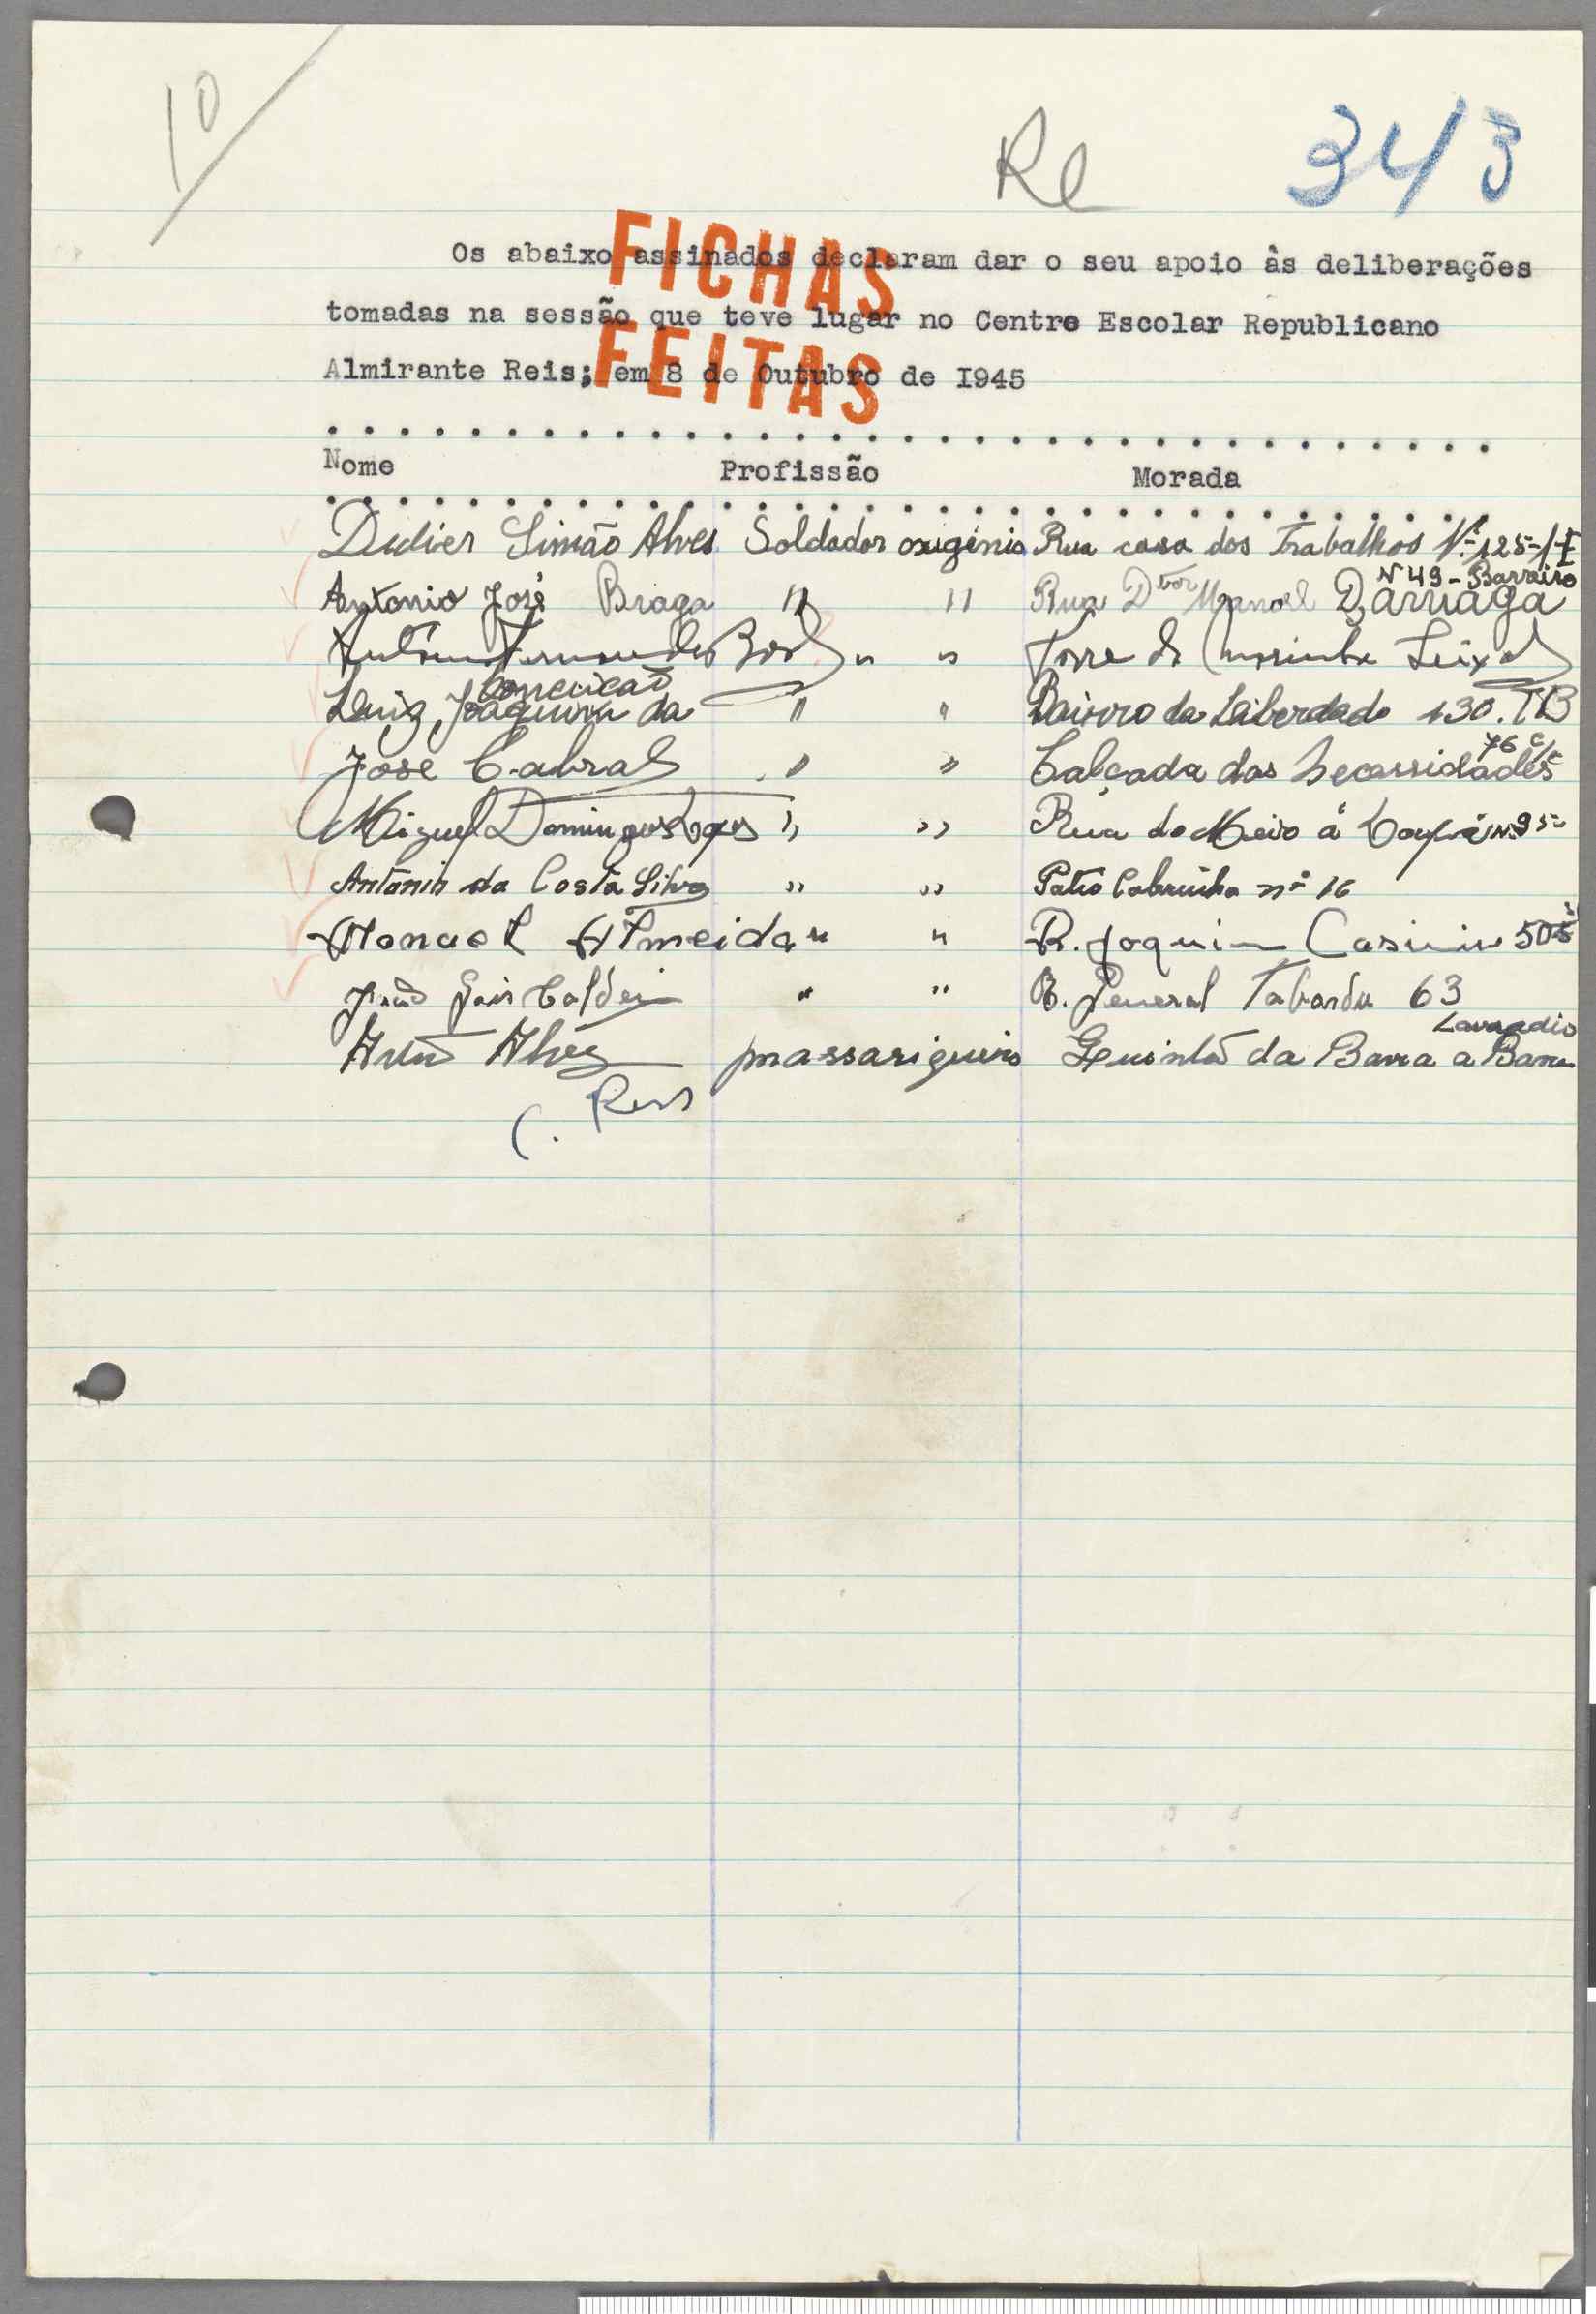 10
Re
343
FICHAS
FEITAS
Os abaixo assinados declaram dar o seu apoio às deliberações
tomadas na sessão que teve lugar no Centro Escolar Republicano
Almirante Reis; em 8 de Outubro de I945
Nome Profissão Morada
Didier Simão Alves Soldador oxigénio Rua casa dos Trabalhos Nº 125-1-E
Nº 49 - Barreiro
Antonio José Braga " " Rua Dtor Manoel D, arriaga
António Fernandes " " Torre de
Conceição
Luiz Joaquim da " " Bairro da Liberdade 130. T B
76 c/c
José Cabral " " Calçada das Necessidades
Miguel Domingos Lopes " " Rua do Meio á Nº 95
António da Costa Silva " " Patio Cabrinha nº 16
Manael Almeida " " R. Joquim Casimiro 50
João " " R. General Taborda 63
Lavradio
Alves massariqueiro Quinta da Barra a Barra
C. Reis